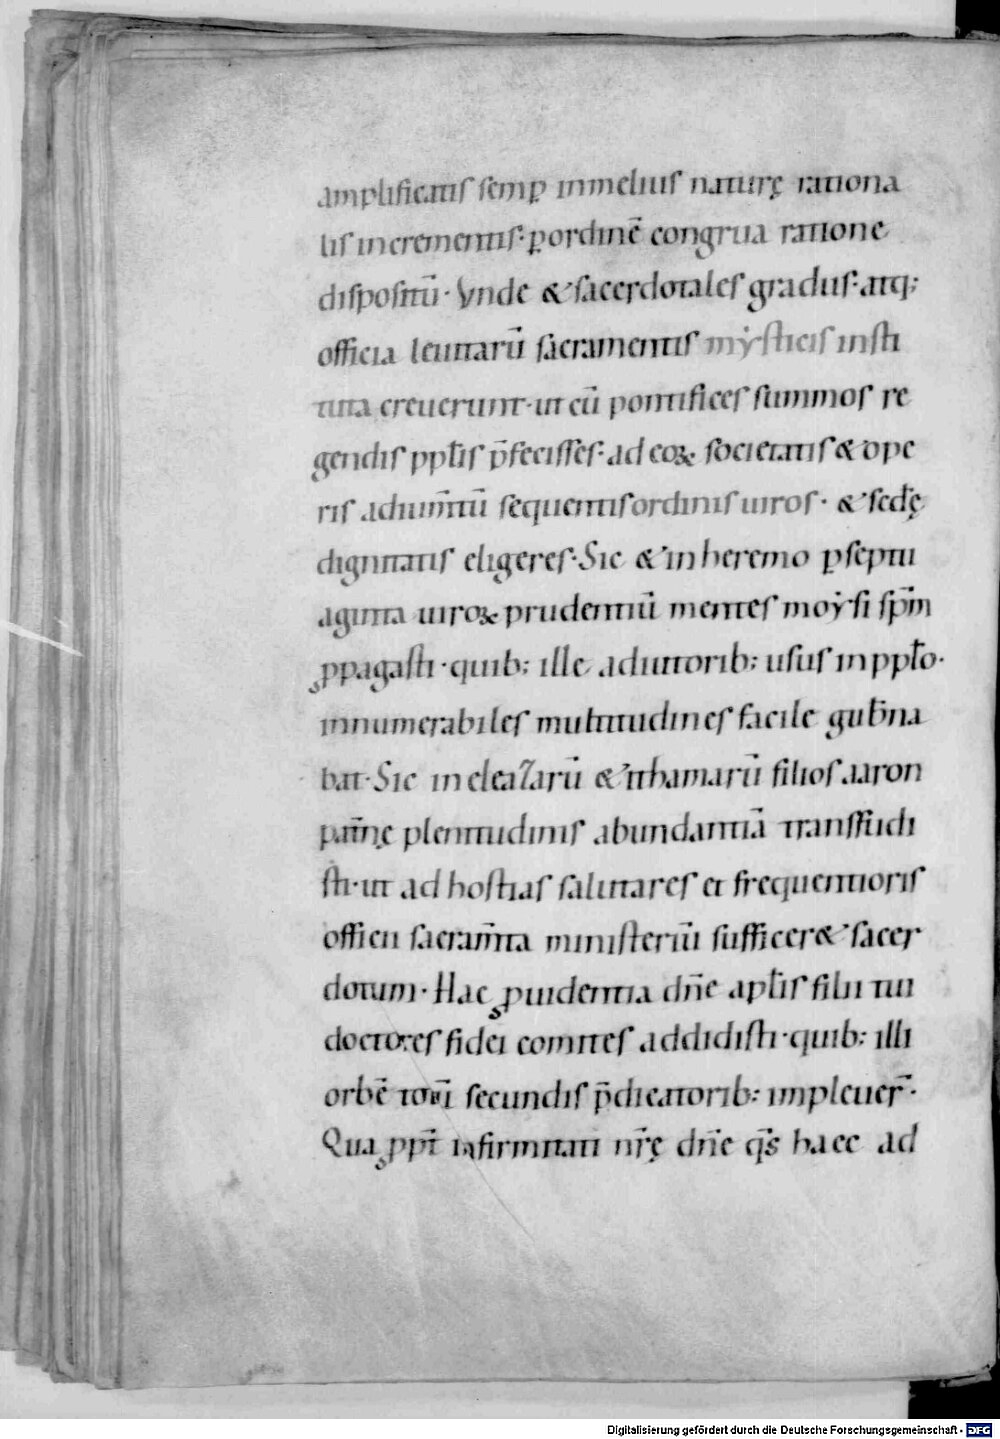 amplificatis semꝑ inmelius naturę rationa
lis incrementis· ꝑordinē congrua ratione
dispositū· Vnde & sacerdotales gradus· atq;
officia leuitarū sacramentis mẏsticis insti
tuta creuerunt· ut cū pontifices summos re
gendis ppl̄is p̄fecisses· ad eoꝝ societatis & ope
ris adium̄tū sequentis ordinis uiros· & sed̄ę
dignitatis eligeres· Sic & in heremo ꝑseptu
aginta uiroꝝ prudentiū mentes moẏsi sp̄m
ꝓpagasti· quib; ille adiutorib; usus in ppl̄o·
innumerabiles multitudines facile gub̄na
bat· Sic in eleazarū & ithamarū filios aaron
pat̄nę plenitudinis abundantiā transfudi
sti· ut ad hostias salutares et frequentioris
officii sacram̄ta ministeriū sufficer& sacer
dotum· Hac ꝓuidentia dn̄e apl̄is filii tui
doctores fidei comites addidisti· quib; illi
orbē totū secundis p̄dicatorib; impleuer̄·
Qua ꝓpt̄ infirmitati nr̄ę dn̄e q̄s haec ad
Digitalisierung gefördert durch die Deutsche Forschungsgemeinschaft - DFG